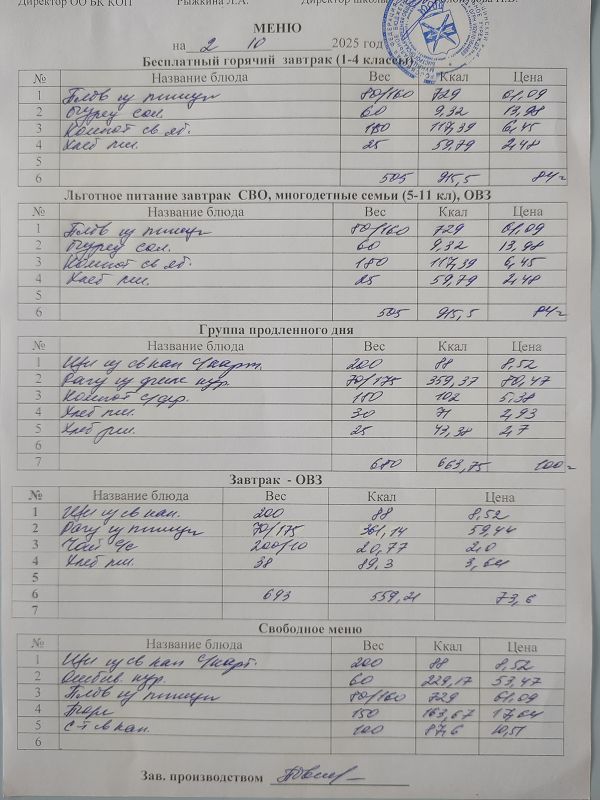 Директор ОО БК КОП Рыжкина Л.А. Директор школы
МЕНЮ
на 2 10 2025 год
Бесплатный горячий завтрак (1-4 классы)
№ Название блюда Вес Ккал Цена
1 Плов из птицы 80/160 729 61,09
2 Огурец сол. 60 9,32 13,98
3 Компот св яб. 180 117,39 6,45
4 Хлеб пш. 25 59,79 2,48
5
6 505 915,5 84=
Льготное питание завтрак СВО, многодетные семьи (5-11 кл), ОВЗ
№ Название блюда Вес Ккал Цена
1 Плов из птицы 80/160 729 61,09
2 Огурец сол. 60 9,32 13,98
3 Компот св яб. 180 117,39 6,45
4 Хлеб пш. 25 59,79 2,48
5
6 505 915,5 84=
Группа продленного дня
№ Название блюда Вес Ккал Цена
1 Щи из св кап с/карт. 200 88 8,52
2 Рагу из филе кур. 70/175 359,37 80,47
3 Компот с/фр. 180 102 5,38
4 Хлеб пш. 30 71 2,93
5 Хлеб рж. 25 43,38 2,7
6
7 680 663,75 100=
Завтрак - ОВЗ
№ Название блюда Вес Ккал Цена
1 Щи из св кап. 200 88 8,52
2 Рагу из птицы 70/175 361,14 59,44
3 Чай с/с 200/10 20,77 2,0
4 Хлеб пш. 38 89,3 3,64
5
6 693 559,21 73,6
7
Свободное меню
№ Название блюда Вес Ккал Цена
1 Щи из св кап с/карт. 200 88 8,52
2 Отбив. кур. 60 229,17 53,47
3 Плов из птицы 80/160 729 61,09
4 150 163,67 17,64
5 С-т св кап. 100 87,6 10,51
6
Зав. производством